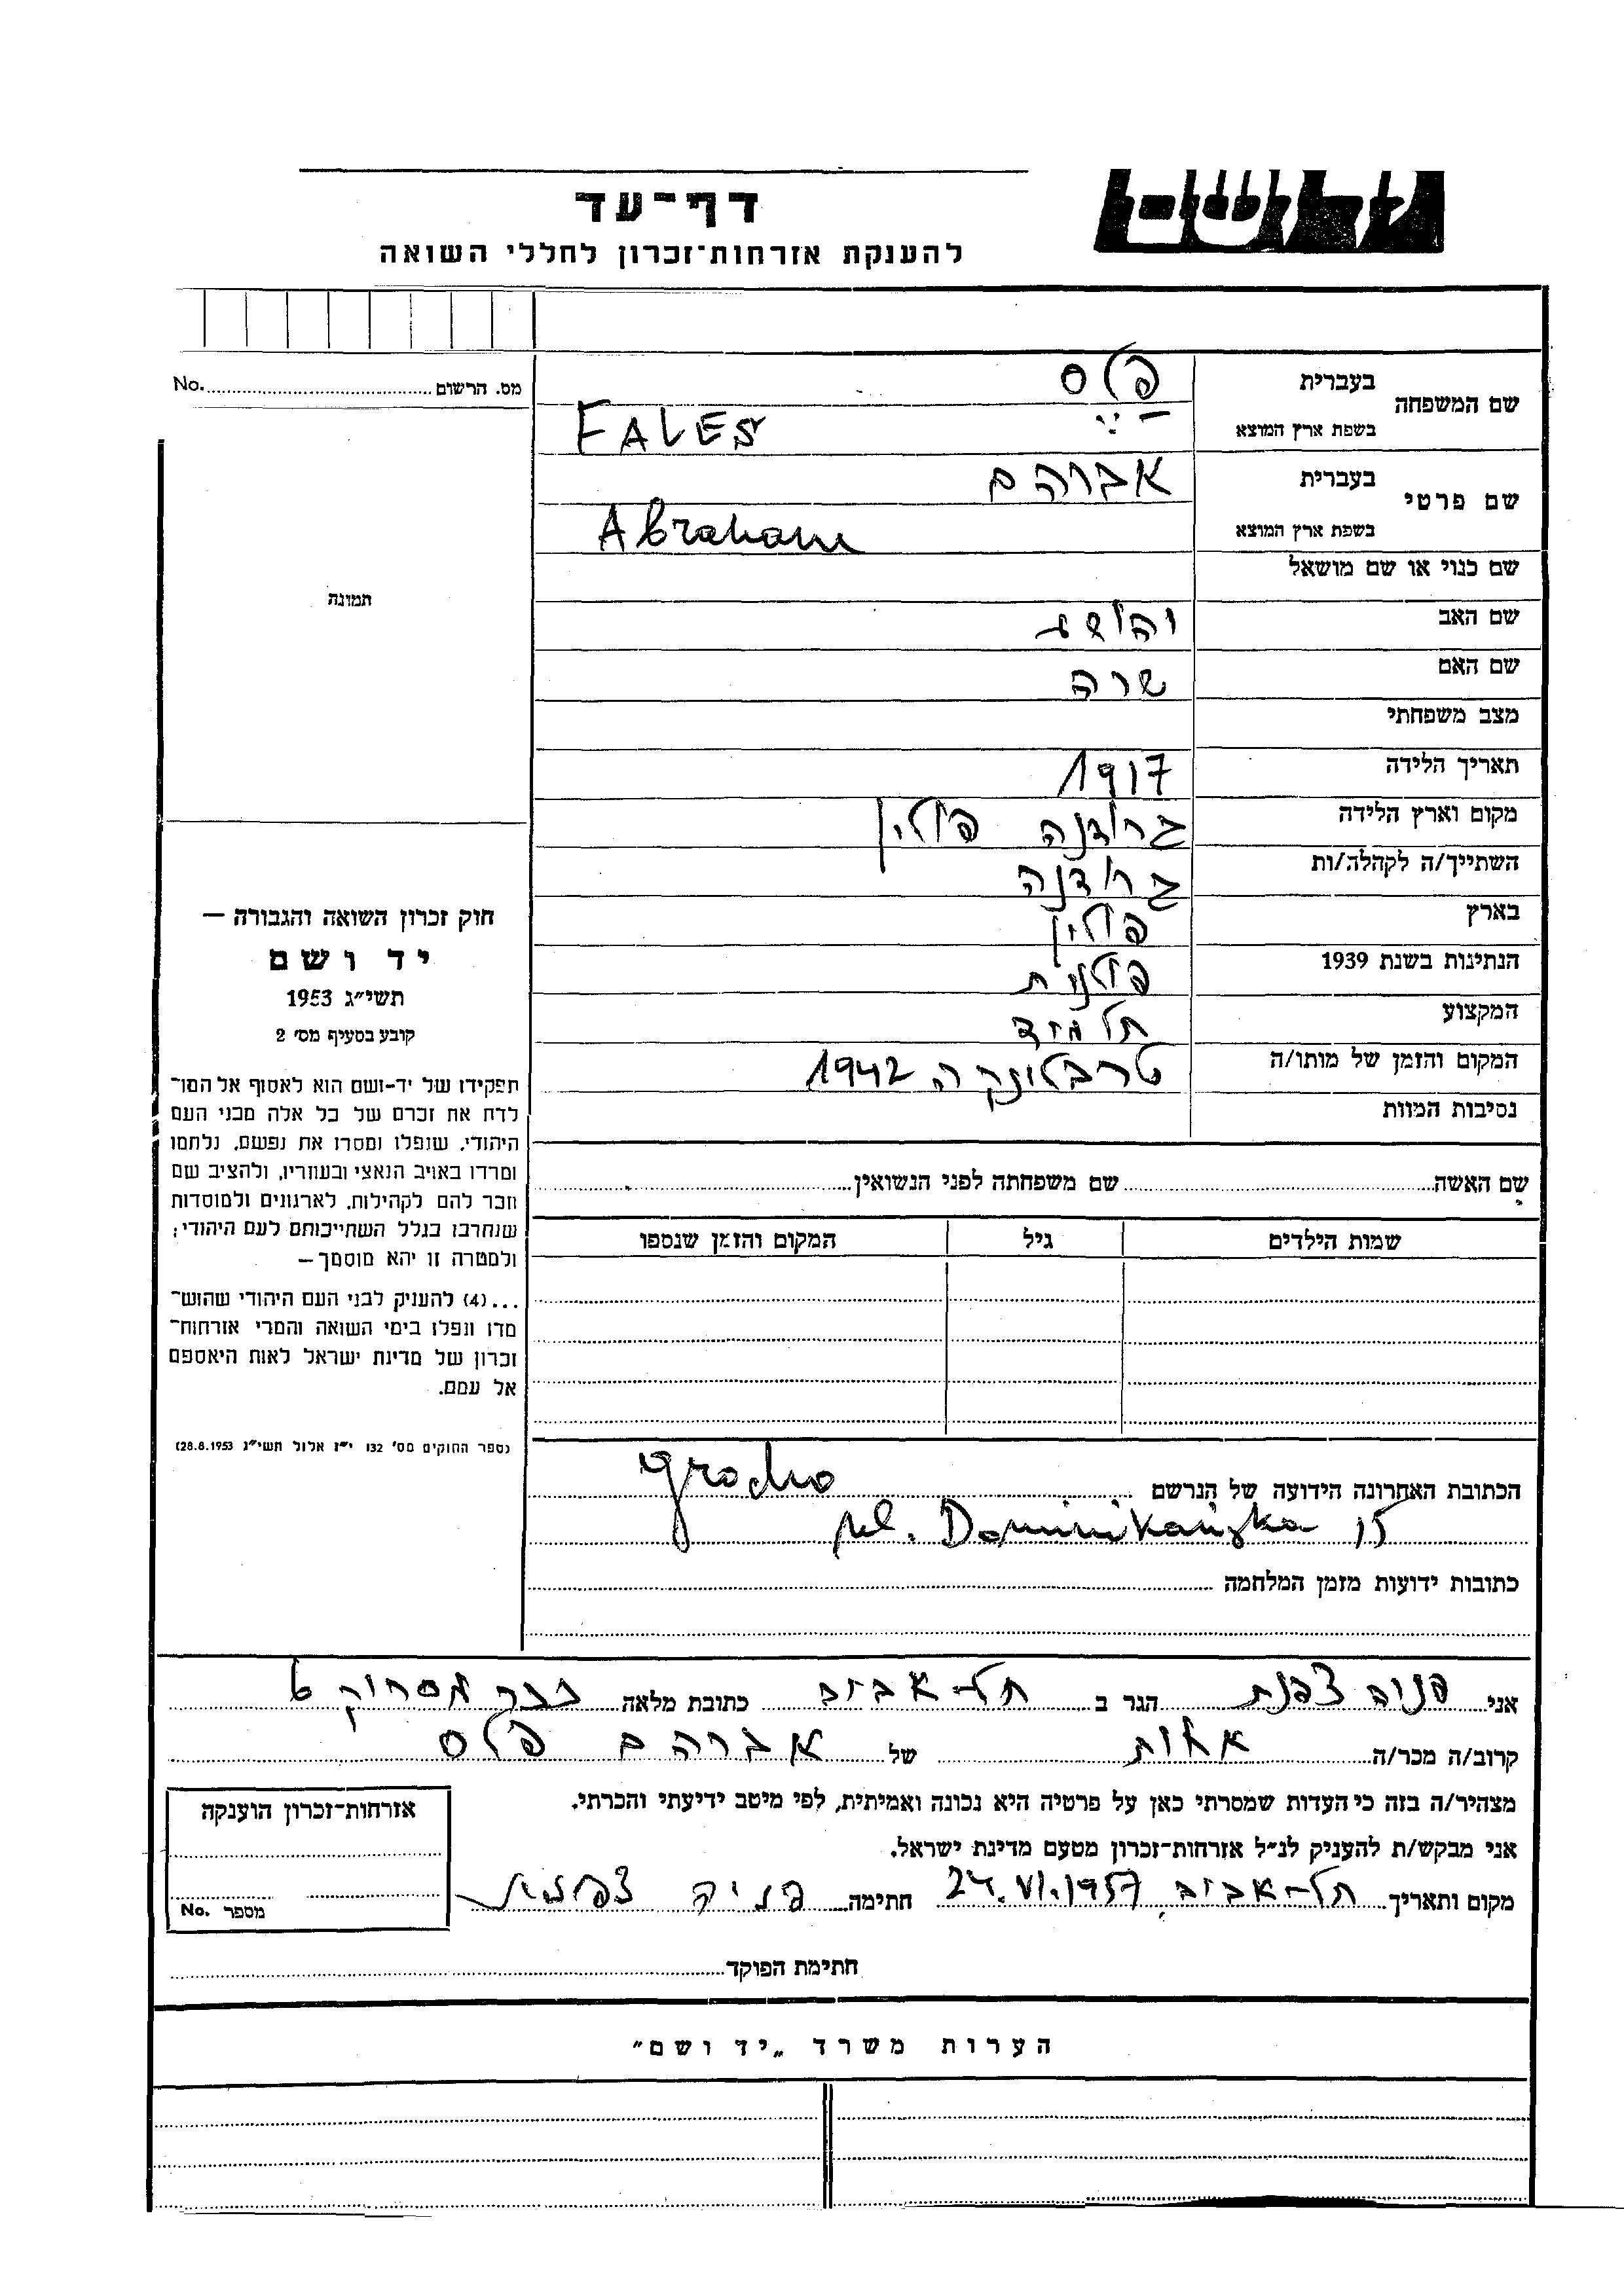 יד ושם
דף־עד
להענקת אזרחות־זכרון לחללי השואה
מס. הרשום No.
שם המשפחה
בעברית פלס
בשפת ארץ המוצא FALES
שם פרטי
בעברית אברהם
בשפת ארץ המוצא Abraham
שם כנוי או שם מושאל
שם האב יהושע
שם האם שרה
מצב משפחתי
תאריך הלידה 1917
מקום וארץ הלידה גרודנה פולין
השתייך/ה לקהלה/ות גרודנה
בארץ פולין
הנתינות בשנת 1939 פולנית
המקצוע תלמיד
המקום והזמן של מותו/ה טרבלינקה 1942
נסיבות המוות
תמונה
חוק זכרון השואה והגבורה —
יד ושם
תשי״ג 1953
קובע בסעיף מס׳ 2
תפקידו של יד-ושם הוא לאסוף אל המו־
לדת את זכרם של כל אלה מבני העם
היהודי, שנפלו ומסרו את נפשם, נלחמו
ומרדו באויב הנאצי ובעוזריו, ולהציב שם
וזכר להם לקהילות, לארגונים ולמוסדות
שנחרבו בגלל השתייכותם לעם היהודי;
ולמטרה זו יהא מוסמך —
...(4) להעניק לבני העם היהודי שהוש־
מדו ונפלו בימי השואה והמרי אזרחות־
זכרון של מדינת ישראל לאות היאספם
אל עמם.
(ספר החוקים מס׳ 132 י״ז אלול תשי״ג 28.8.1953)
שם האשה שם משפחתה לפני הנשואין
שמות הילדים גיל המקום והזמן שנספו
הכתובת האחרונה הידועה של הנרשם Grodno
ul. Dominikańska 15
כתובות ידועות מזמן המלחמה
אני פניה צפנת הגר ב תל-אביב כתובת מלאה ככר מסריק 6
קרוב/ה מכר/ה אחות של אברהם פלס
מצהיר/ה בזה כי העדות שמסרתי כאן על פרטיה היא נכונה ואמיתית, לפי מיטב ידיעתי והכרתי.
אני מבקש/ת להעניק לנ״ל אזרחות־זכרון מטעם מדינת ישראל.
מקום ותאריך תל-אביב, 24.VI.1957 חתימה פניה צפנת
אזרחות־זכרון הוענקה
מספר No.
חתימת הפוקד
הערות משרד „יד ושם״